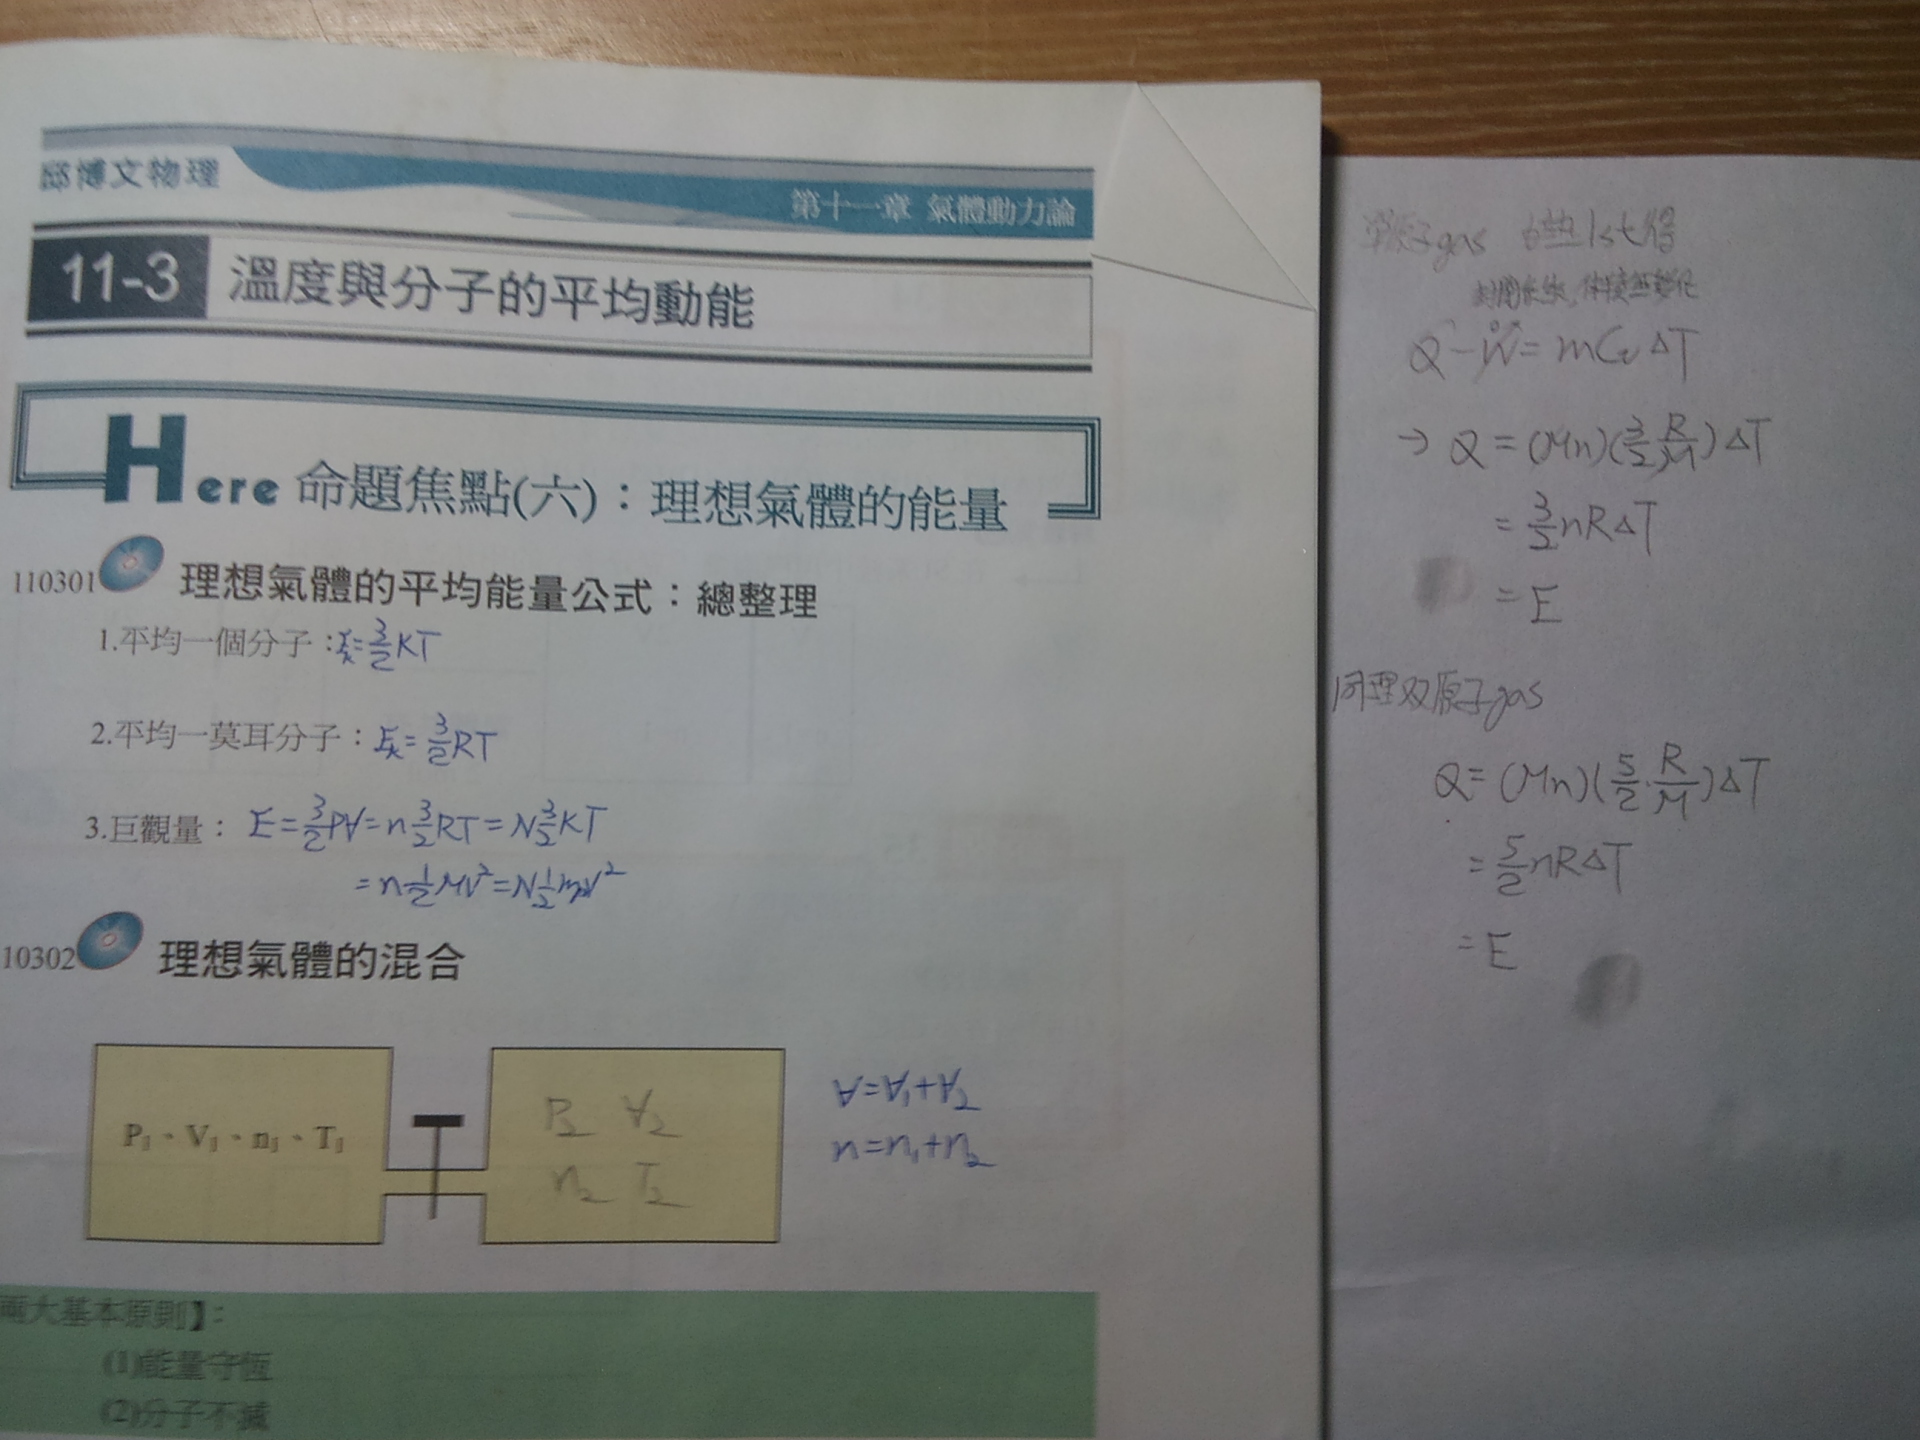 邱博文物理
第十一章 氣體動力論
11-3 溫度與分子的平均動能
Here 命題焦點(六)：理想氣體的能量
110301 理想氣體的平均能量公式：總整理
1.平均一個分子：Ek=3/2KT
2.平均一莫耳分子：Ek=3/2RT
3.巨觀量：E=3/2PV=n3/2RT=N3/2KT
=n1/2MV²=N1/2mV²
10302 理想氣體的混合
P₁、V₁、n₁、T₁
P₂ V₂
n₂ T₂
V=V₁+V₂
n=n₁+n₂
兩大基本原則】：
(1)能量守恆
(2)分子不滅
單原子gas 由熱1st得
封閉系統,體積無變化
Q-W⁰=mCvΔT
→Q=(Mn)(3/2 R/M)ΔT
=3/2nRΔT
=E
同理双原子gas
Q=(Mn)(5/2·R/M)ΔT
=5/2nRΔT
=E